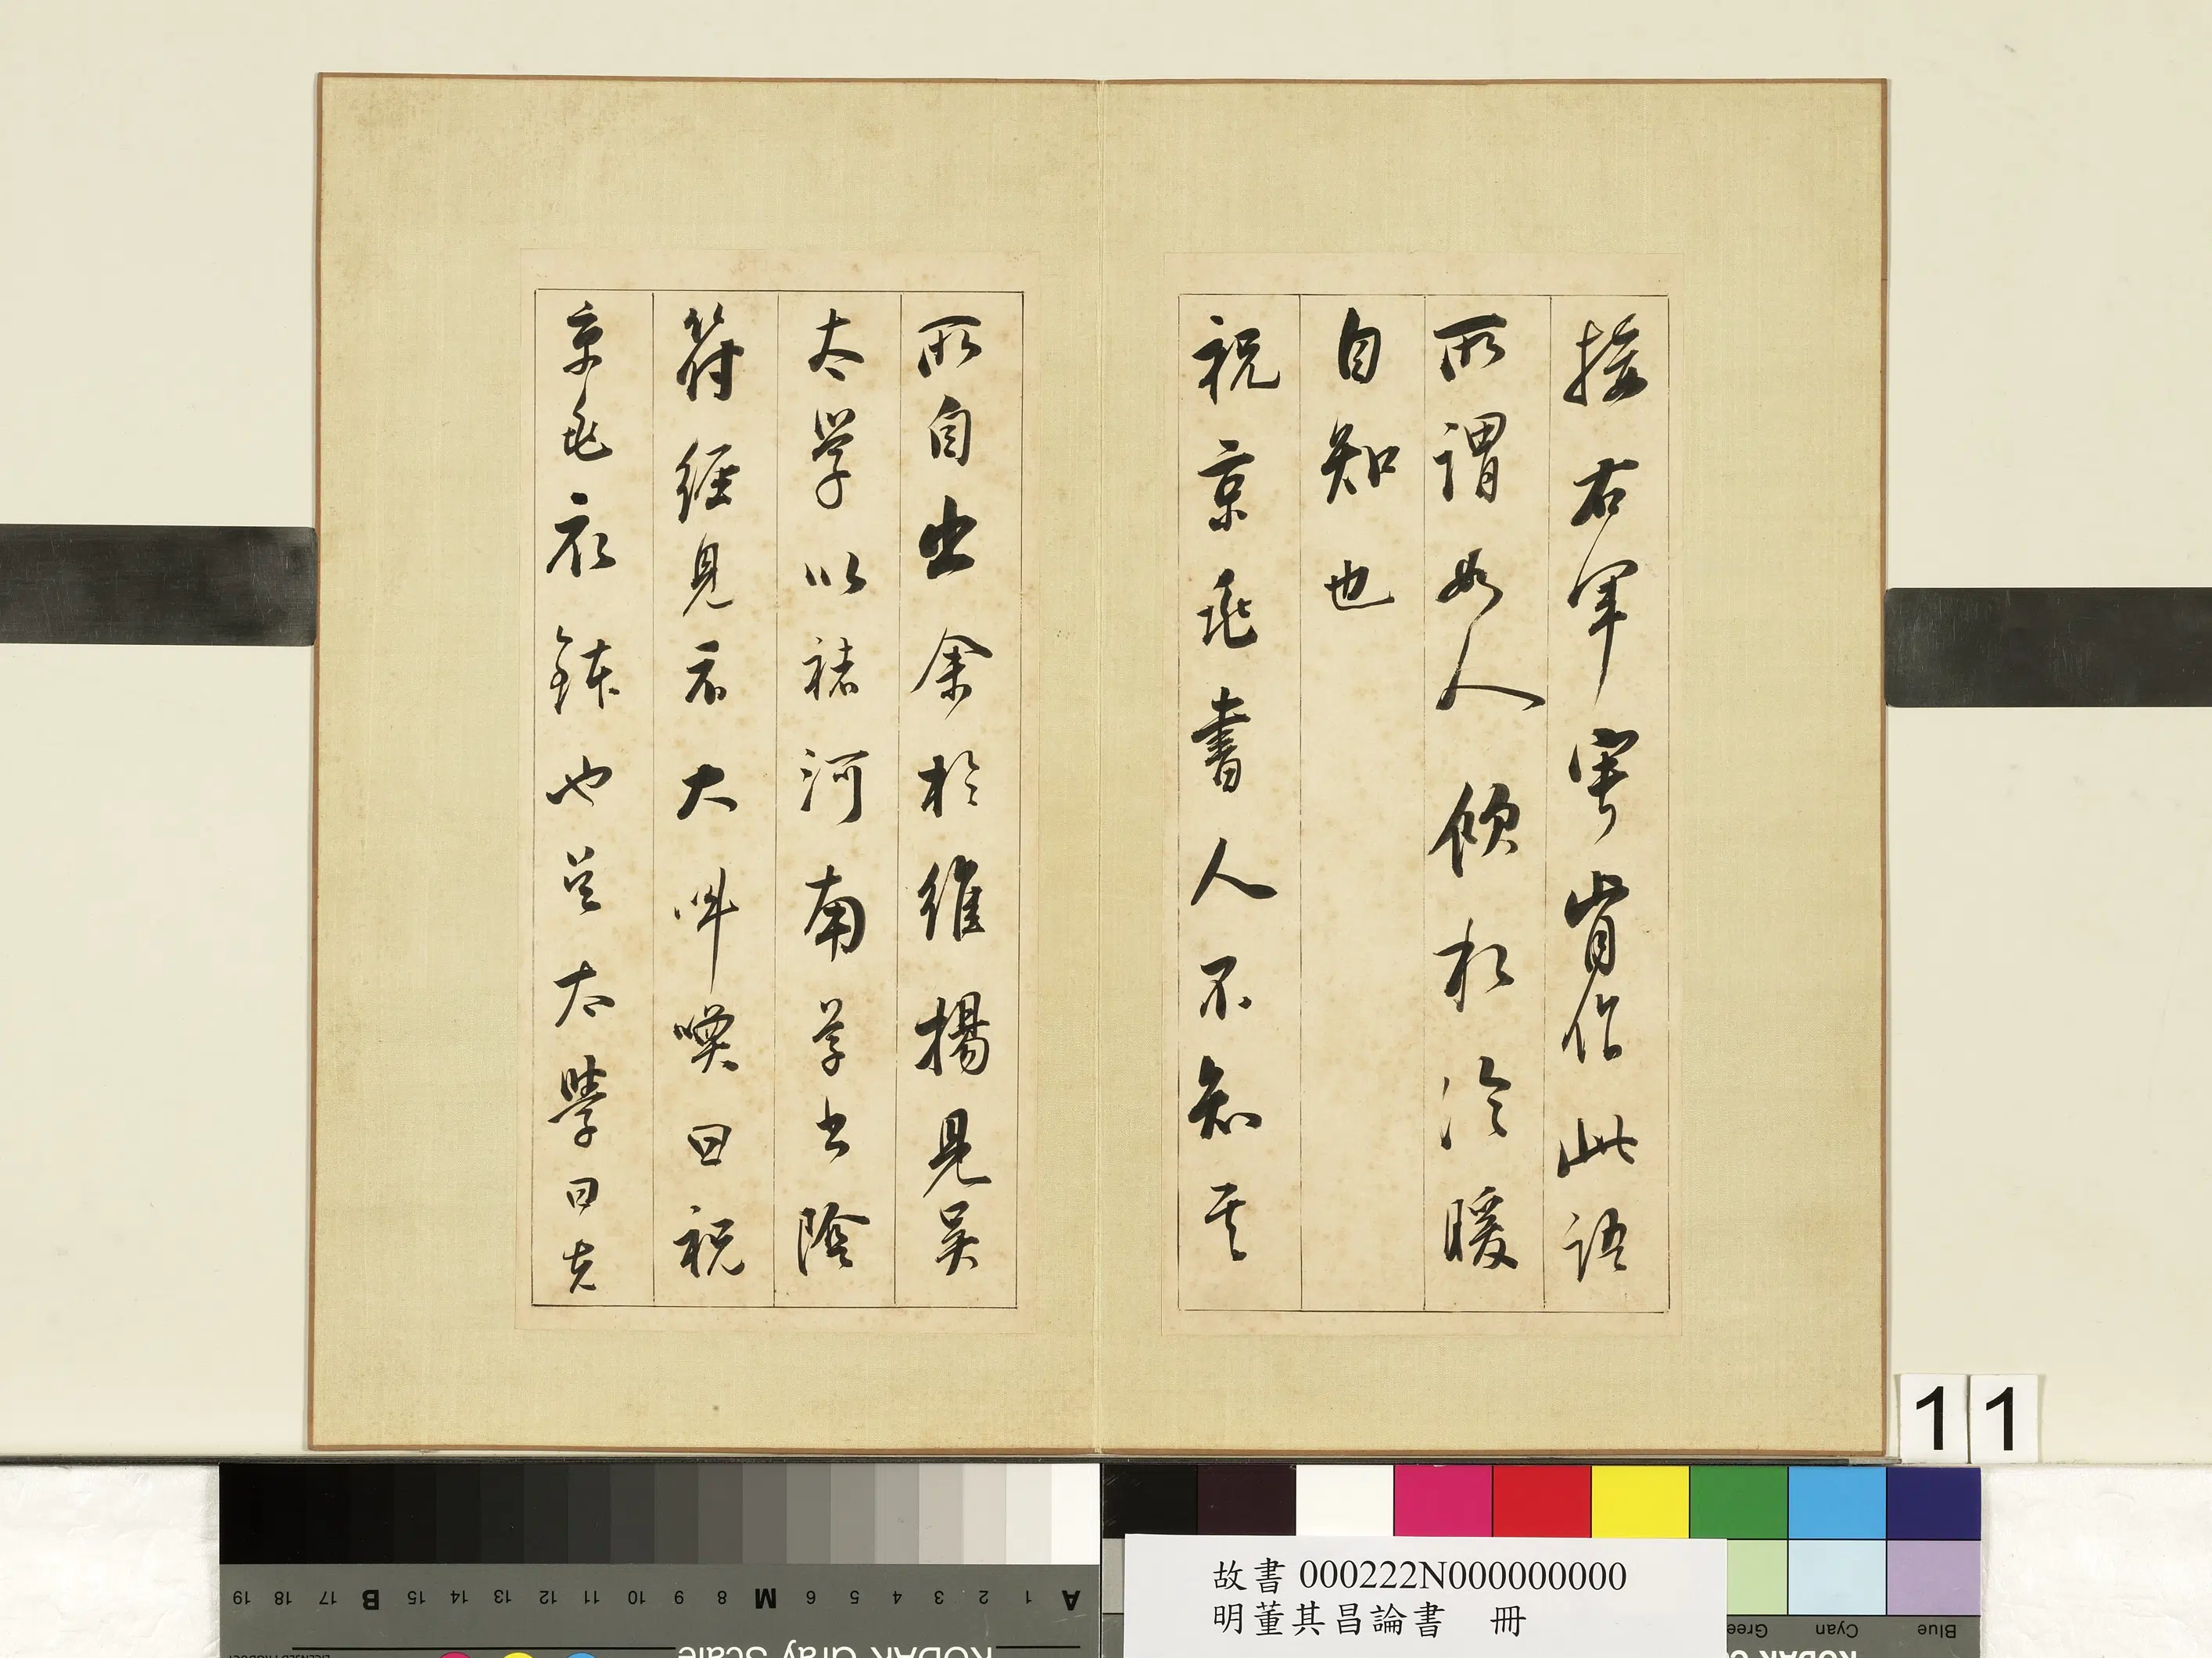 接右軍寧肯作此語
所謂如人飲水冷暖
自知也
祝京兆書人不知其
所自出余於維揚見吴
太学以褚河南草书陰
符經見示大叫喚曰祝
京兆衣鉢也吴太學曰
11
故書 000222N000000000
明董其昌論書 冊
A 1 2 3 4 5 6 M 8 9 10 11 12 13 14 15 B 17 18 19
KODAK Gray Scale
Cyan
Blue